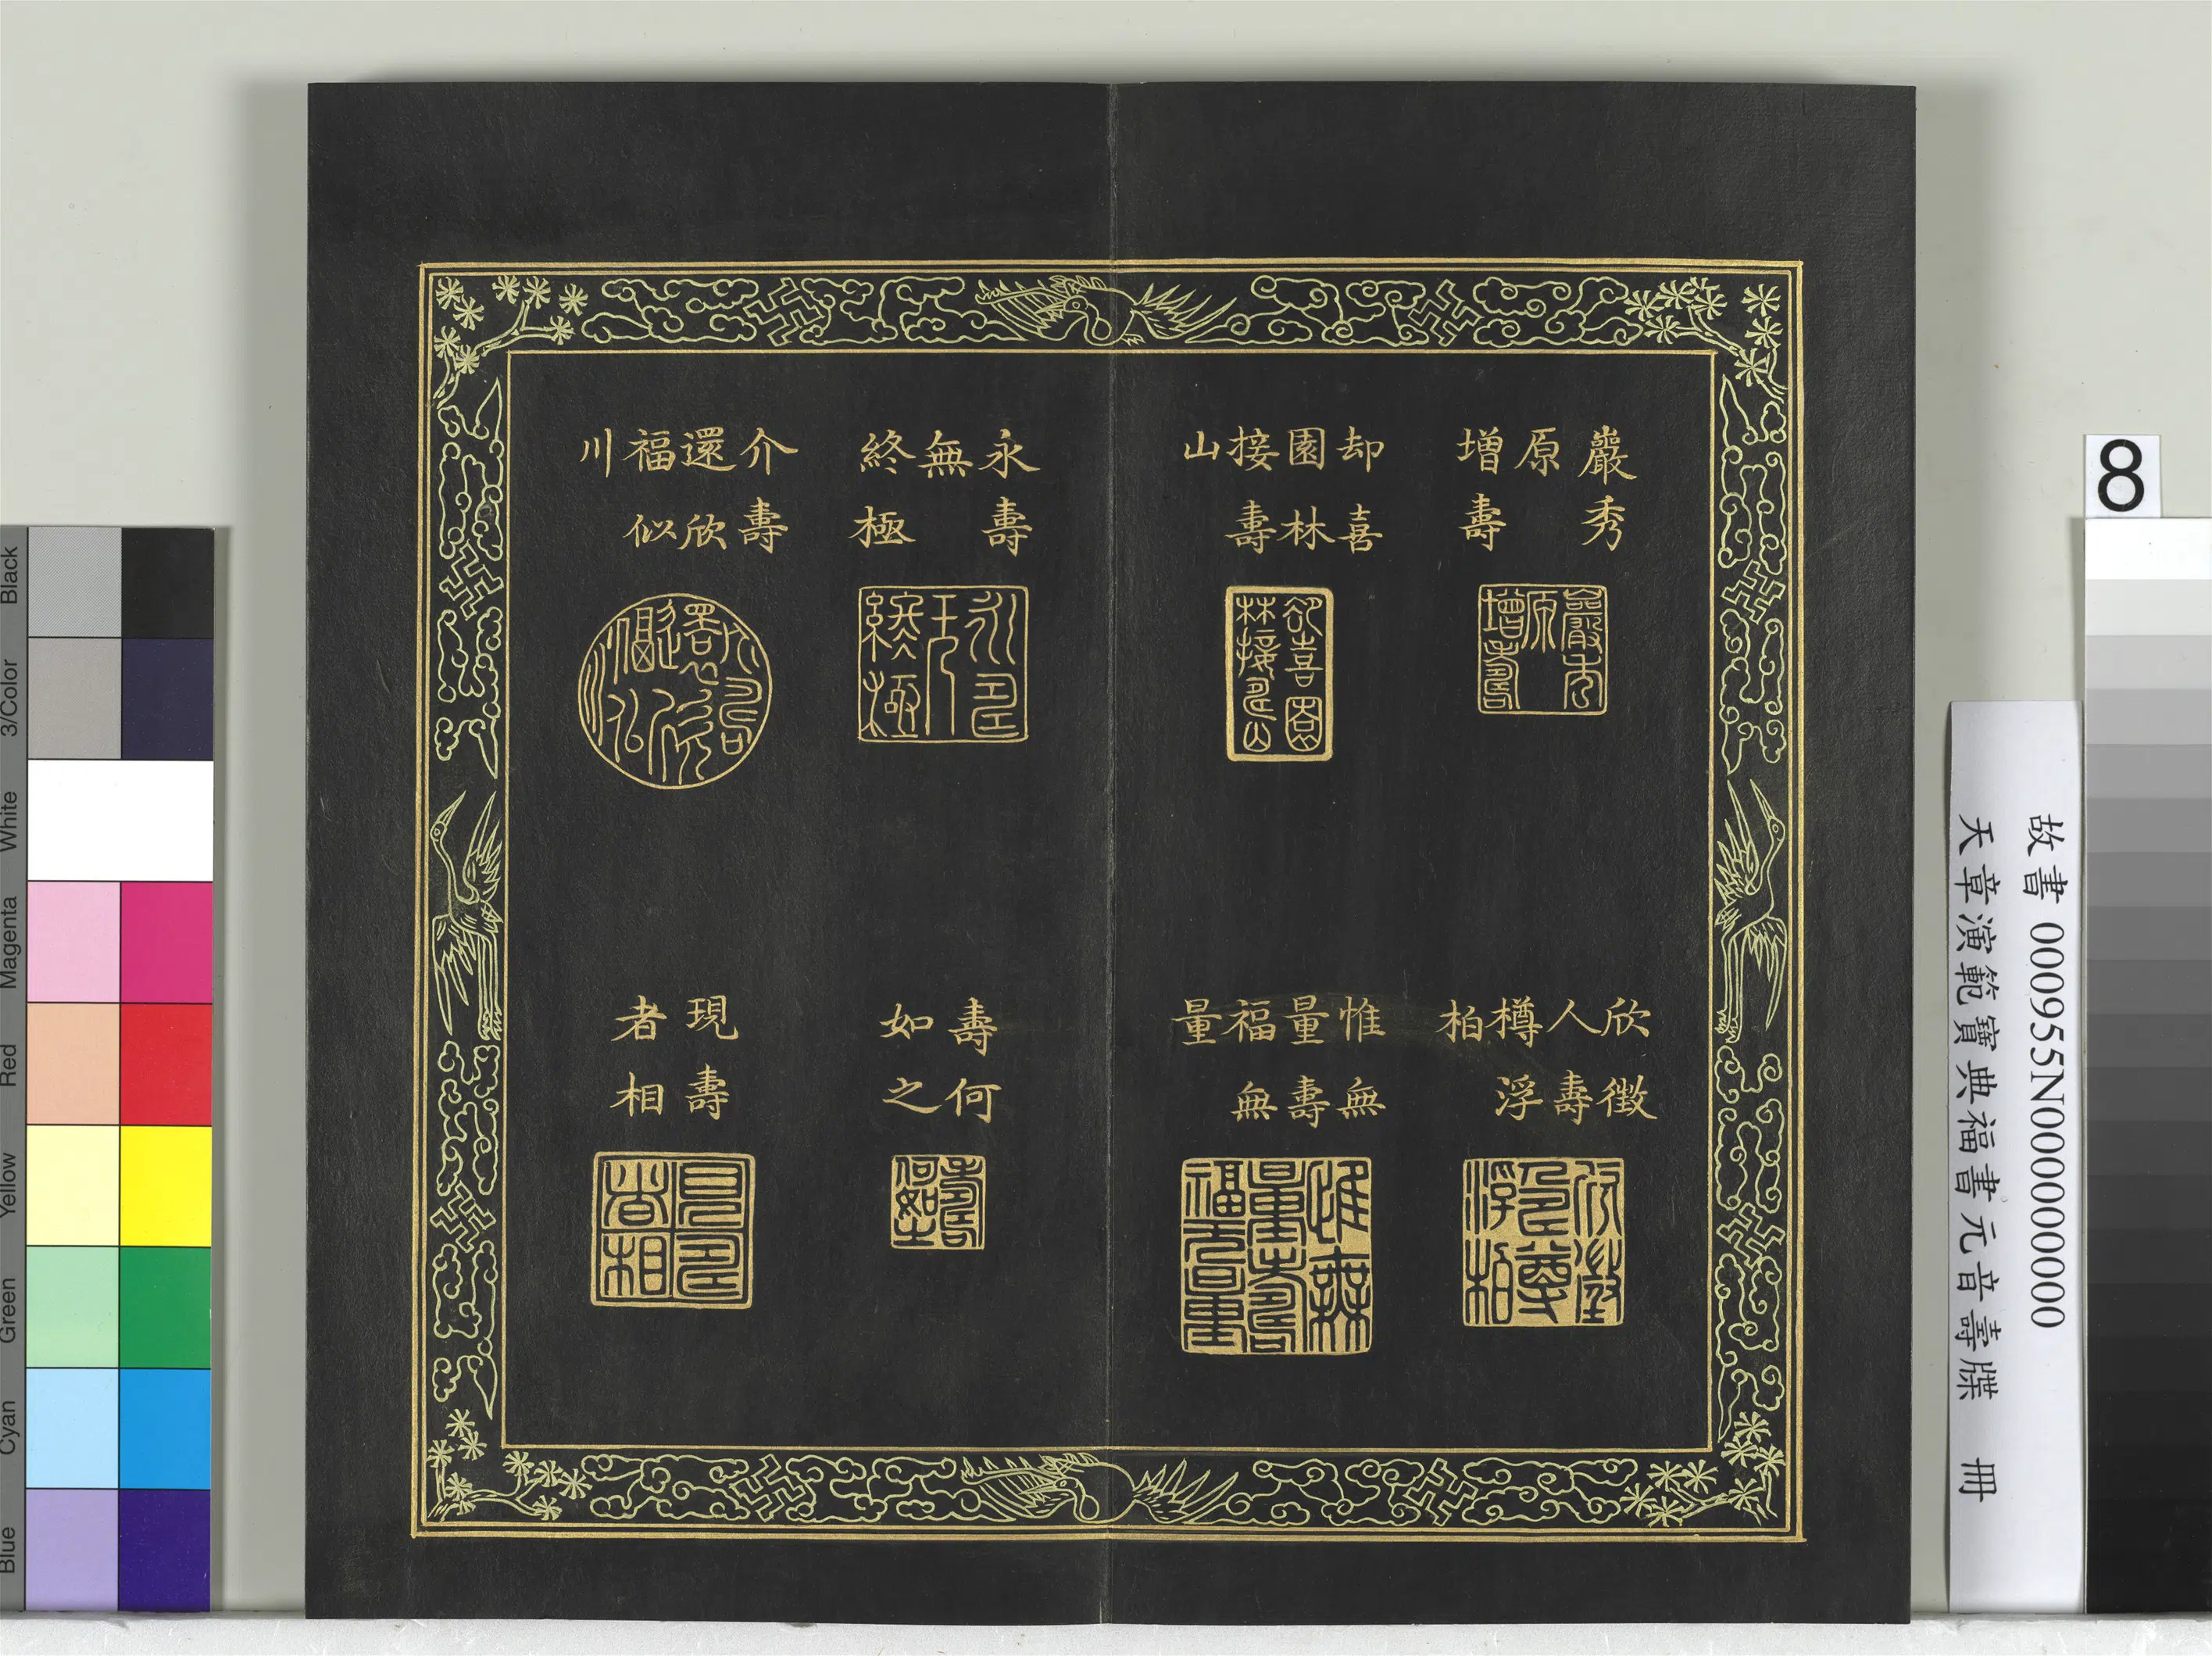 巖秀
原
增壽
却喜
園林
接壽
山
永壽
無
終極
介壽
還欣
福似
川
欣徵
人壽
樽浮
柏
惟無
量壽
福無
量
壽何
如之
現壽
者相
8
故書 000955N000000000
天章演範寶典福書元音壽牒 冊
Black
3/Color
White
Magenta
Red
Yellow
Green
Cyan
Blue